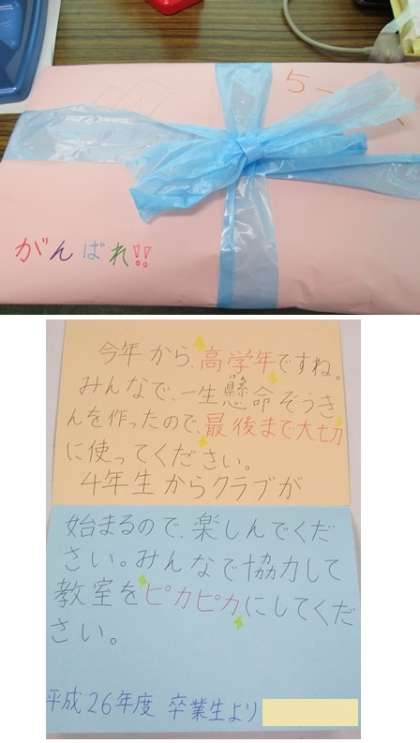 5-
がんばれ!!
今年から、高学年ですね。
みんなで、一生懸命ぞうき
んを作ったので、最後まで大切
に使ってください。
4年生からクラブが
始まるので、楽しんでくだ
さい。みんなで協力して
教室をピカピカにしてくだ
さい。
平成26年度 卒業生より